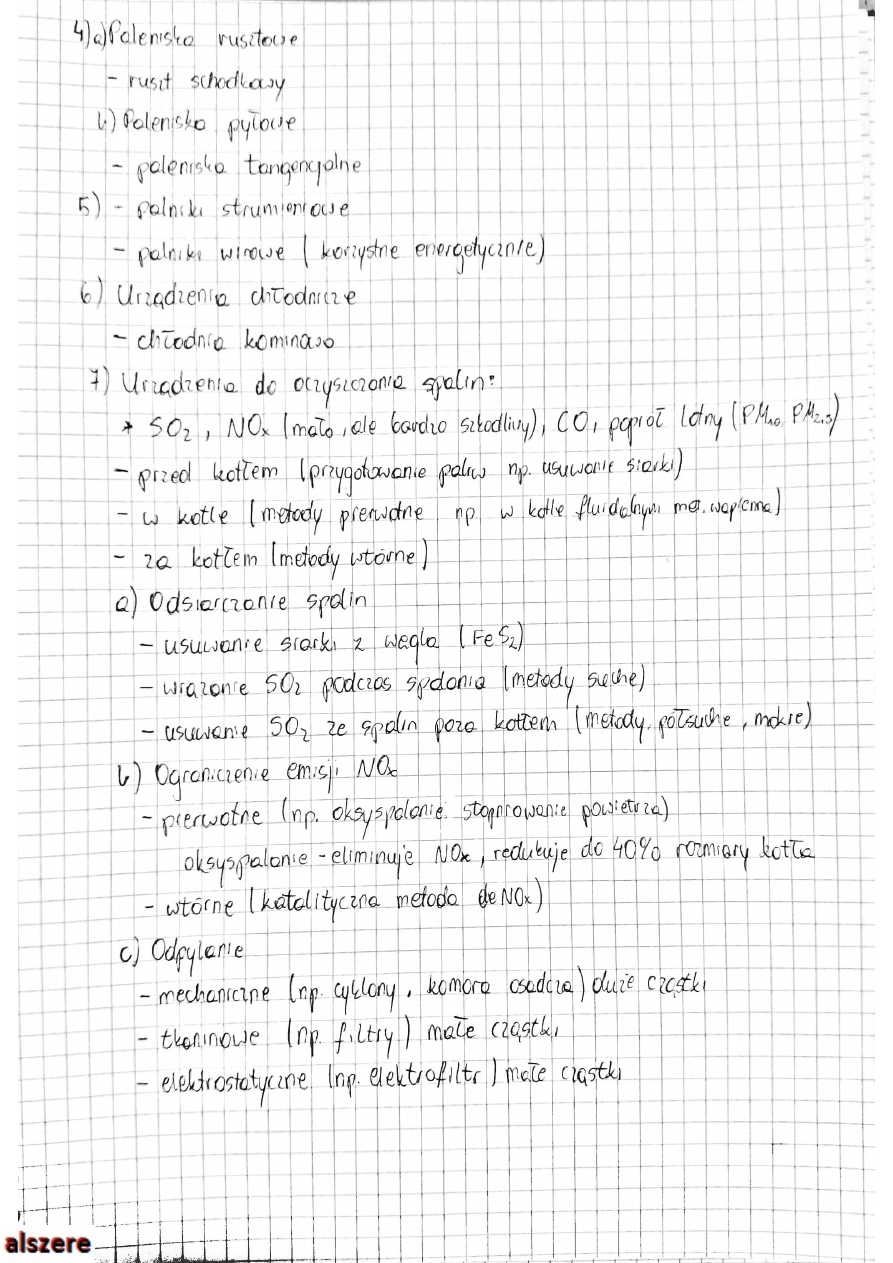 4) a) Paleniska rusztowe
- ruszt schodkowy
b) Palenisko pyłowe
- paleniska tangencjalne
5) - palniki strumieniowe
- palniki wirowe (korzystne energetycznie)
6) Urządzenia chłodnicze
- chłodnia kominowa
7) Urządzenia do oczyszczania spalin:
* SO₂, NOₓ (mało, ale bardzo szkodliwy), CO, popiół lotny (PM₁₀, PM₂,₅)
- przed kotłem (przygotowanie paliw np. usuwanie siarki)
- w kotle (metody pierwotne np. w kotle fluidalnym met. wapienna)
- za kotłem (metody wtórne)
a) Odsiarczanie spalin
- usuwanie siarki z węgla (FeS₂)
- wiązanie SO₂ podczas spalania (metody suche)
- usuwanie SO₂ ze spalin poza kotłem (metody półsuche, mokre)
b) Ograniczenie emisji NOₓ
- pierwotne (np. oksyspalanie stopniowanie powietrza)
oksyspalanie - eliminuje NOₓ, redukuje do 40% rozmiary kotła
- wtórne (katalityczna metoda deNOₓ)
c) Odpylanie
- mechaniczne (np. cyklony, komora osadcza) duże cząstki
- tkaninowe (np. filtry) małe cząstki
- elektrostatyczne (np. elektrofiltr) małe cząstki
alszere